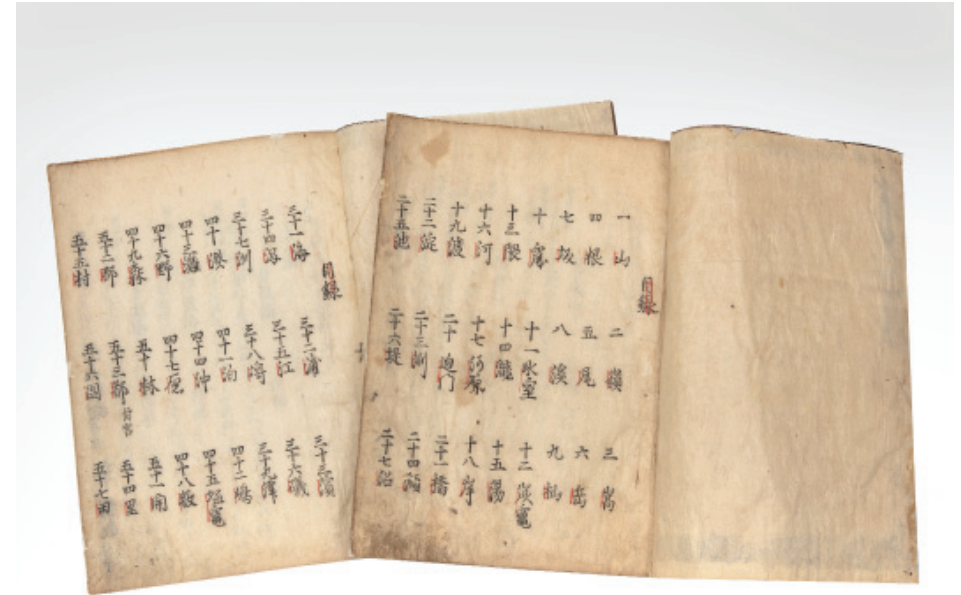 目録
一山 二嶺 三嵩
四根 五尾 六
七坂 八溪 九杣
十 十一氷室 十二炭竈
十三隈 十四瀧 十五湯
十六河 十七河原 十八岸
十九渡 二十迫門 二十一橋
二十二淀 二十三 二十四瀬
二十五池 二十六堤 二十七沼
目録
三十一海 三十二浦 三十三濱
三十四 三十五江 三十六磯
三十七洲 三十八 三十九
四十 四十一泊 四十二嶋
四十三灘 四十四沖 四十五塩竈
四十六野 四十七原 四十八牧
四十九森 五十林 五十一関
五十二 五十三 五十四里
五十五村 五十六国 五十七田